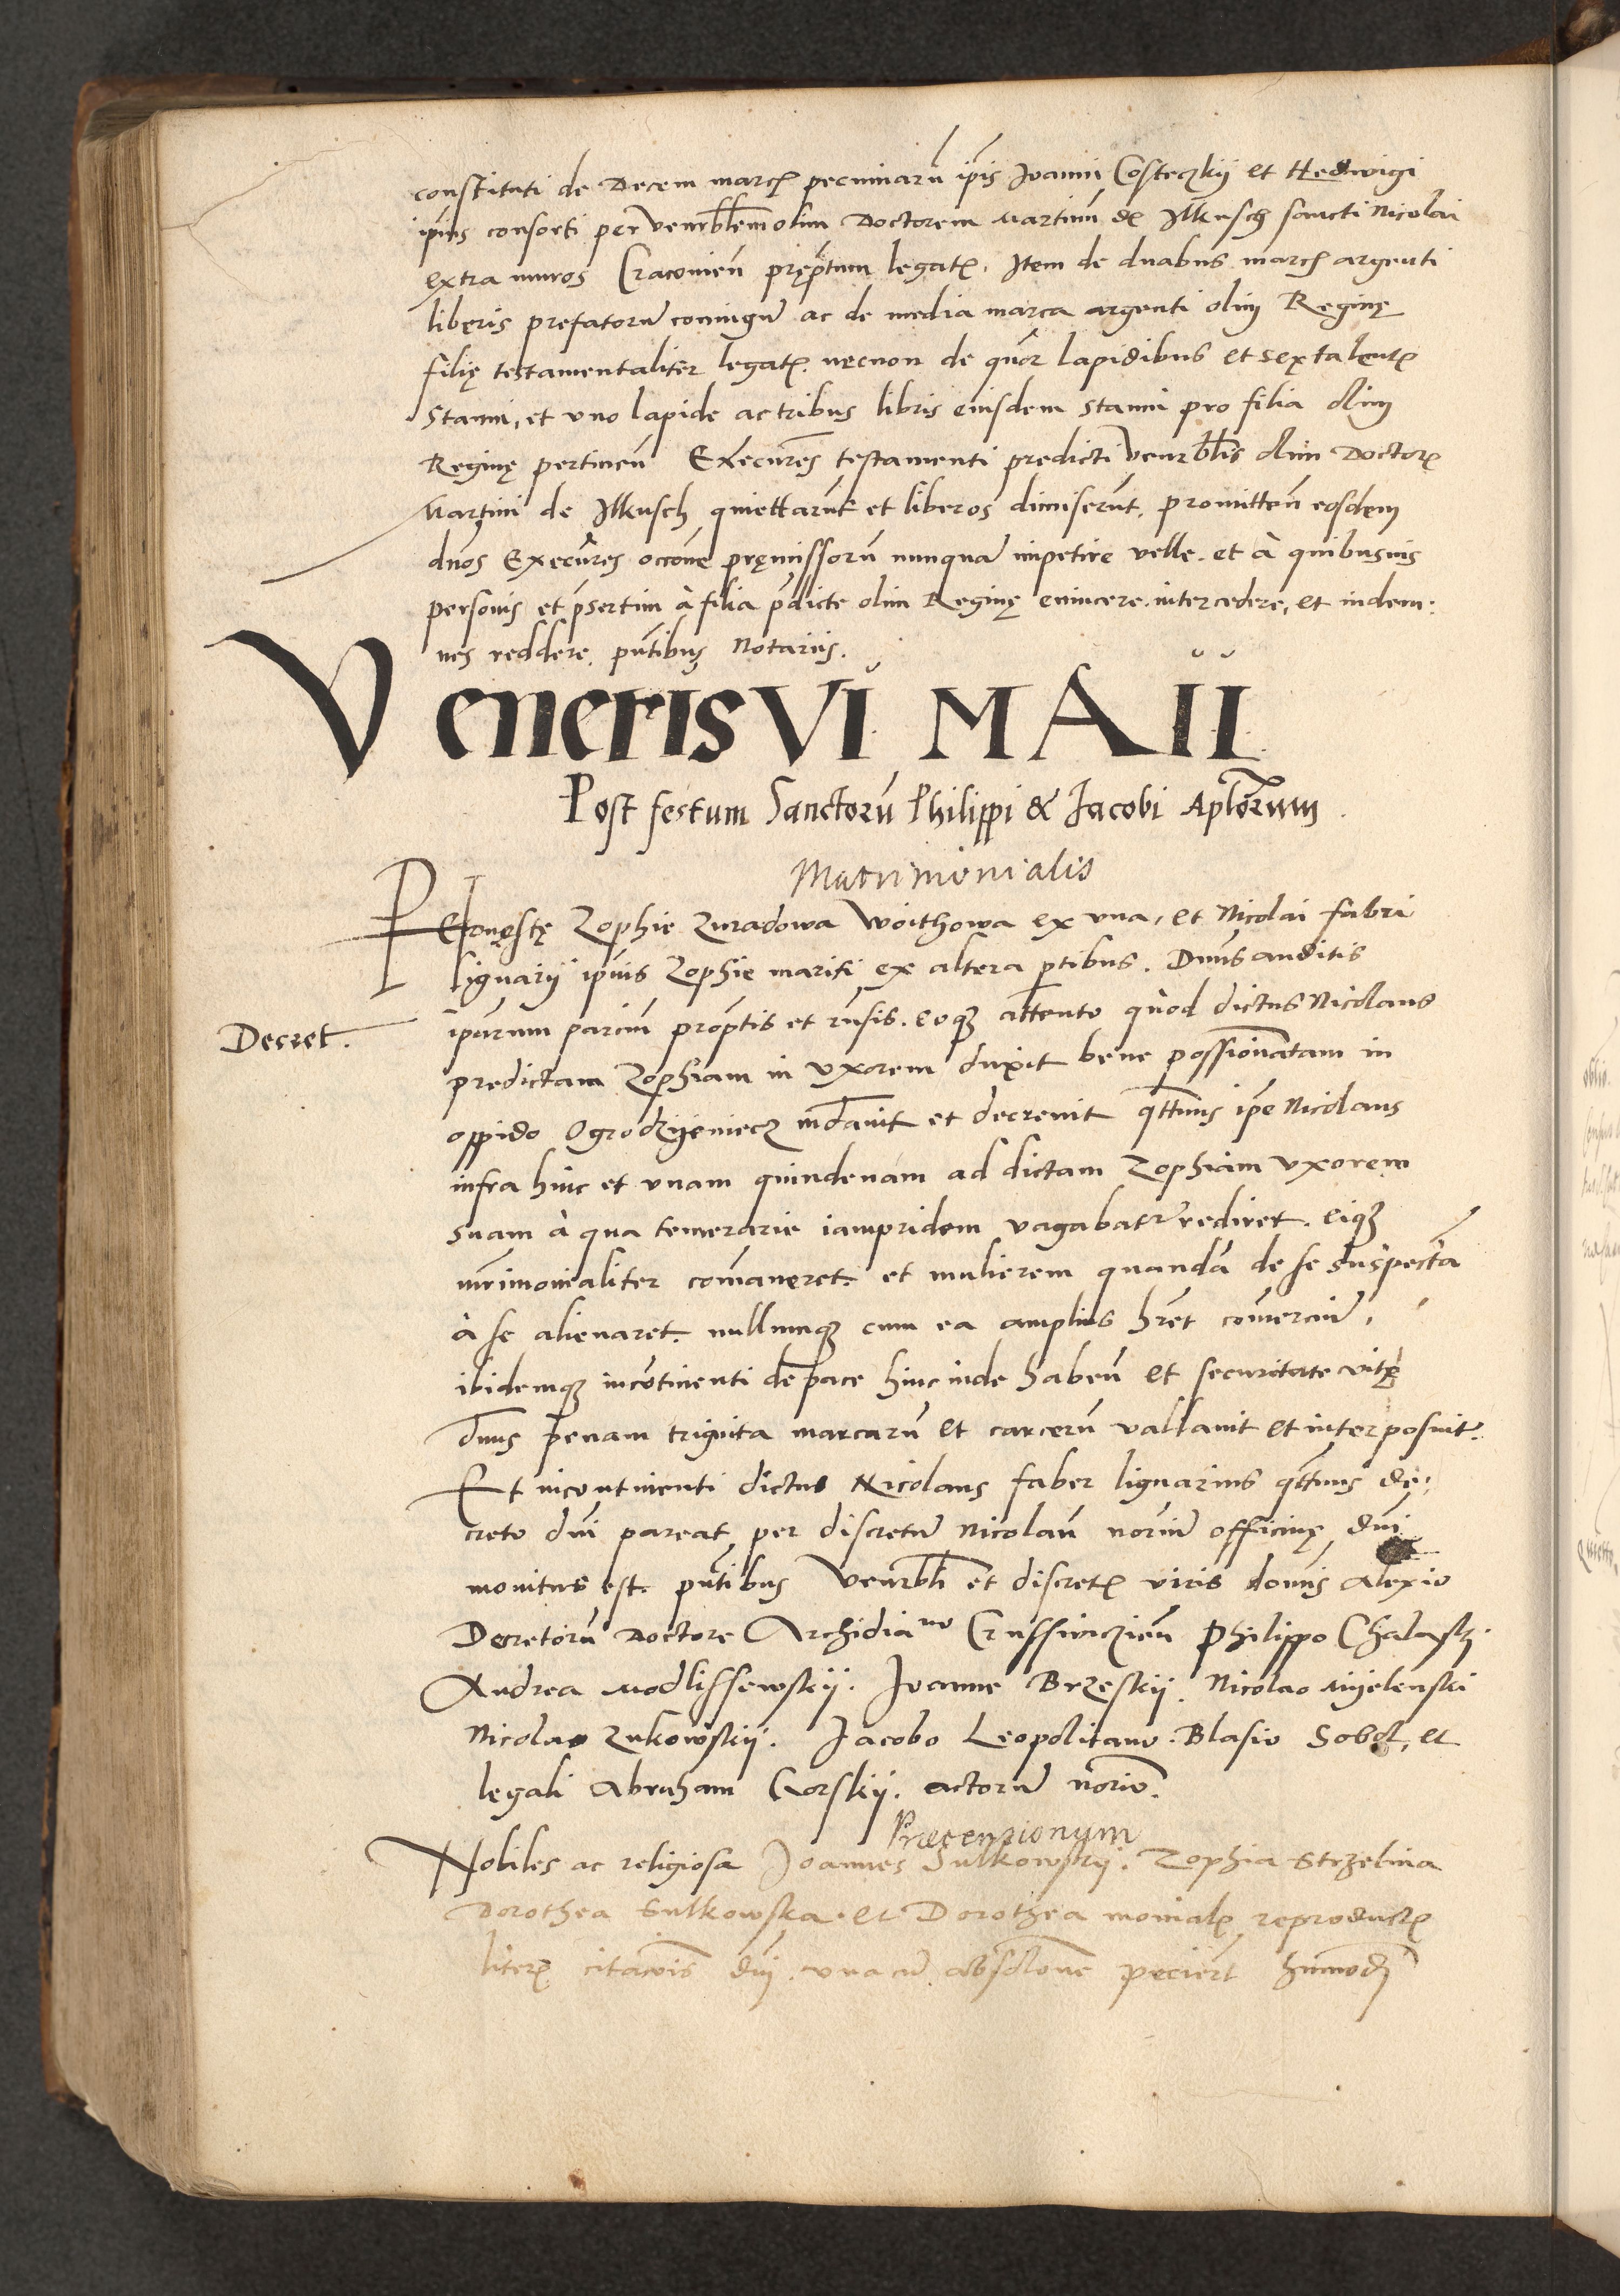 constituti de Decem marcꝭ pecuniarū ip̄is Joanni Costeczkij et Hedwigi
ip̄ius consorti per Venerb̄lem olim Doctorem Martinū de Ilkusch sancti Nicolai
extra muros Cracovien̄ pręp̄tum legatꝭ. Item de duabus marcꝭ argenti
liberis prefatorū coniugū ac de media marca argenti olim Reginę
filię testamentaliter legatꝭ. necnon de qu̅or lapidibus et sex talentꝭ
Stanni, et vno lapide ac tribus libris eiusdem stanni pro filia olim
Reginę pertinen̄ Execut̄res testamenti predicti Venerb̄lis olim Doctorꝭ
Martini de Ilkusch quiettarūt et liberos dimiserūt. promitten̄ eosdem
dn̄os Execut̄res occōne pręmissorū nunquā impetire velle. et à quibusuis
personis et p̄sertim à filia p̄dicte olim Reginę euincere. intercedere, et indem:
nes reddere. pn̄tibus Notariis.
Veneris VI MAII
Post festum Sanctorū Philippi & Jacobi Apl̄orum
Matrimonialis
Honestę Zophie Zuradowa Woithowa ex vna, et Nicolai fabri
lignarij ip̄ius Zophie mariti ex altera ꝑtibus. Dn̄us auditis
ip̄arum parciū prop̄tis et rn̄sis. eoqꝫ attento quòd dictus Nicolaus
Decret.
predictam Zophiam in vxorem duxit bene possionatam in
oppido Ogrodzijeniecz mādauit et decreuit qt̄tnus ip̄e Nicolaus
infra hinc et vnam quindenam ad dictam Zophiam vxorem
suam à qua temerarie iampridem vagabatur rediret. eiqꝫ
mr̄imonialiter com̄aneret. et mulierem quandā de se suspectā
à se alienaret. nullumqꝫ cum ea amplius hr̄et com̄erciū.
ibidemqꝫ incōtinenti de pace hincinde haben̄ et securitate vitę
dn̄us penam triginta marcarū et carcerū vallauit et interposuit.
Et incontinenti dictus Nicolaus faber lignarius qt̄tnus de:
creto dn̄i pareat per discretū Nicolaū nor̄iū officinę dn̄i
monitus est. pn̄tibus Venerb̄li et discretꝭ viris dom̄is Alexio
Decretorū Doctore Archidiaⁿᵒ Crussvicien̄ Philippo Chalaskj.
Andrea Modlissewskij. Joanne Brzeskij. Nicolao Mijelenski
Nicolao Zukowskij. Jacobo Leopolitano. Blasio Sobol, et
legali Abraham Gorskij. actorū nor̄io.
Pręcenzionum
Nobiles ac religiosa Joannes Sulkowskij. Zophia Strzelina
Dorothea Sulkowska. et Dorothea monialꝭ reproductꝭ
literꝭ citac̄ois dn̄i. vnacū absol̄one pecierūt hm̄oi